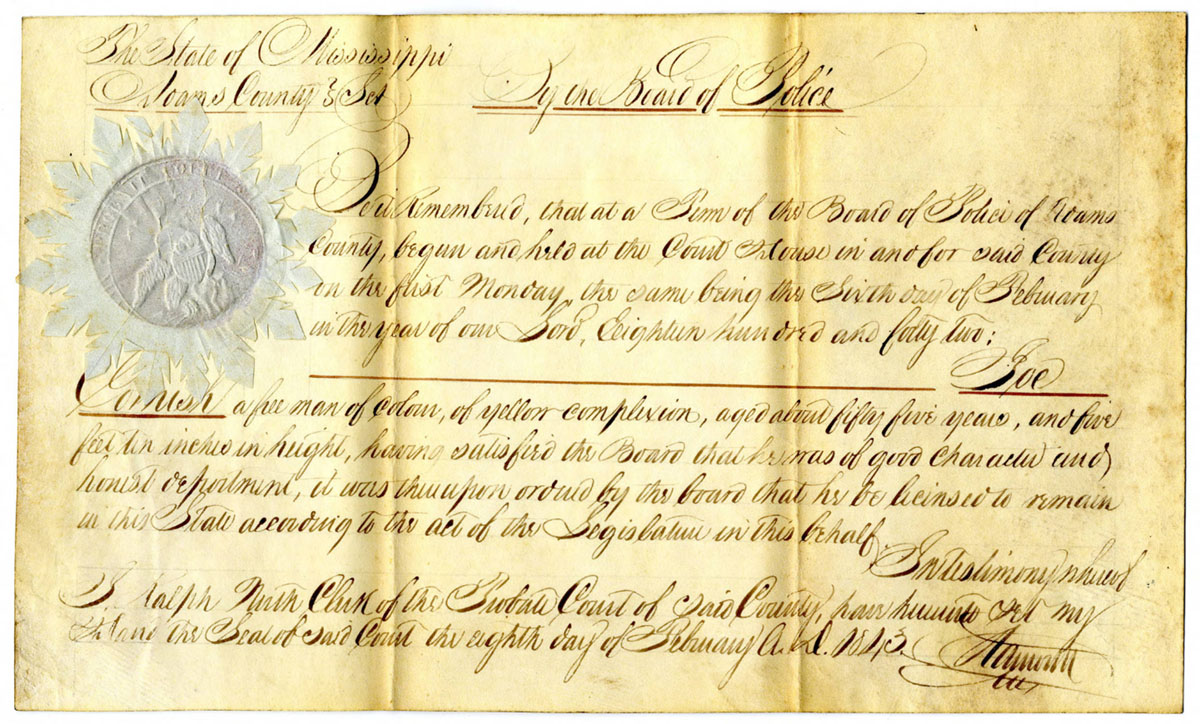 The State of Mississippi
Adams County } Sct
By the Board of Police
Be it Remembered, that at a Term of the Board of Police of Adams
County, begun and held at the Court House in and for said County
on the first Monday, the same being the Sixth day of February
in the year of our Lord, Eighteen hundred and forty two:
Joe
Cornish a free man of colour, of yellow complexion, aged about fifty five years, and five
feet ten inches in height, having satisfied the Board that he was of good character and
honest deportment, it was thereupon ordered by the board that he be licensed to remain
in this State according to the act of the Legislature in this behalf.
In testimony whereof
I, Ralph North Clerk of the Probate Court of said County, have hereunto set my
Hand the Seal of said Court the eighth day of February A.D. 1843.